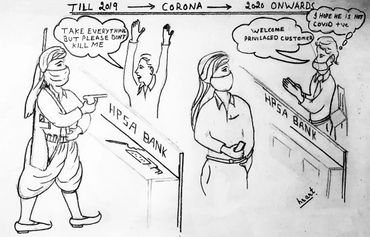 TILL 2019 → CORONA → 2020 ONWARDS
TAKE EVERYTHING
BUT PLEASE DON'T
KILL ME
HPSA BANK
WELCOME
PRIVILAGED CUSTOMER
I HOPE HE IS NOT
COVID +ve
HPSA BANK